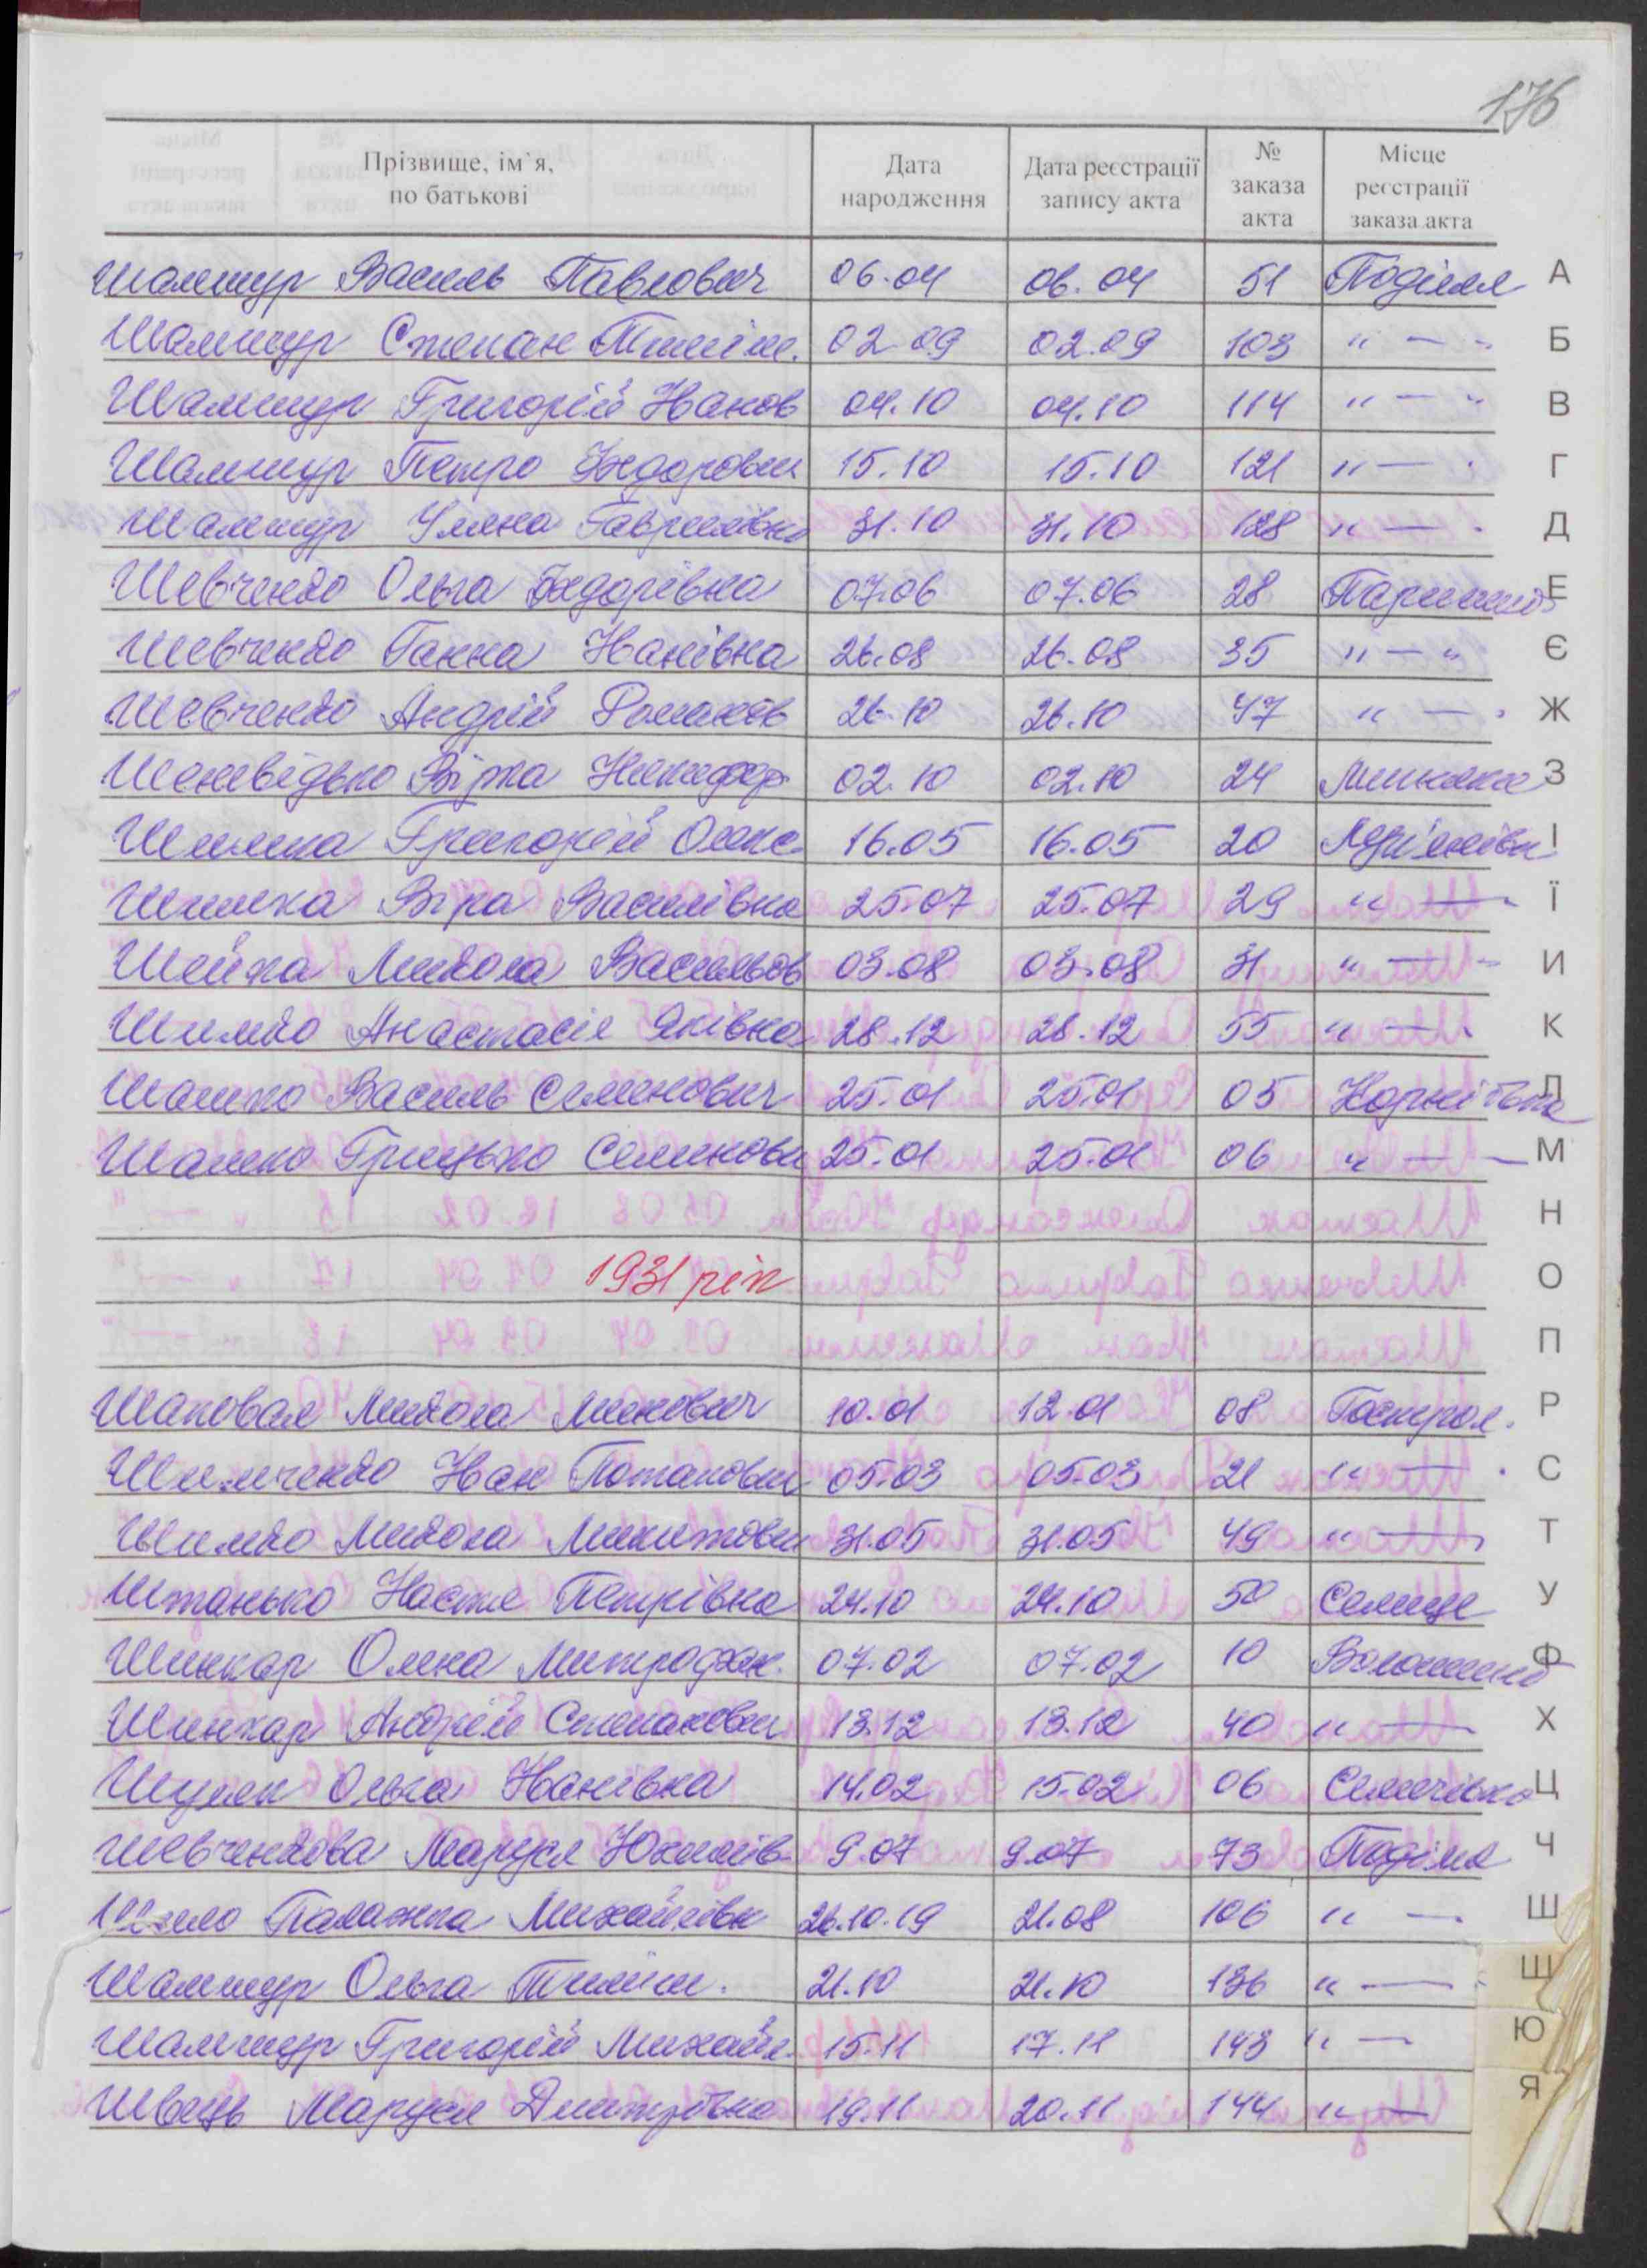 176
Прізвище, ім`я, по батькові Дата народження Дата реєстрації запису акта № заказа акта Місце реєстрації заказа акта
Шамшур Василь Павлович 06.04 06.04 51 Поділля А
Шамшур Степан Тиміш. 02.09 02.09 103 " — " Б
Шамшур Григорій Іванов 04.10 04.10 114 " — " В
Шамшур Петро Федорович 15.10 15.10 121 " — " Г
Шамшур Уляна Гаврилівна 31.10 31.10 128 " — " Д
Шевченко Ольга Федорівна 07.06 07.06 28 Е
Шевченко Ганна Іванівна 26.08 26.08 35 " — " Є
Шевченко Андрій Романов 26.10 26.10 47 " — " Ж
Шеневідько Вірка Никифор 02.10 02.10 24 З
Шишка Григорій Олекс. 16.05 16.05 20 І
Шишка Віра Василівна 25.07 25.07 29 " — Ї
Шейка Микола Васильов 03.08 03.08 31 " — " И
Шимко Анастасія Яківна 28.12 28.12 55 " — К
Шашко Василь Семенович 25.01 25.01 05 Л
Шашко Грицько Семенови 25.01 25.01 06 " — М
Н
1931 рік О
П
Шаповал Микола Минович 10.01 12.01 08 Р
Шимченко Іван Потапович 05.03 05.03 21 " — С
Шимко Микола Микитович 31.05 31.05 49 " — Т
Штанько Настя Петрівна 24.10 24.10 50 Селище У
Шинкар Олена Митрофан. 07.02 07.02 10 Волошино Ф
Шинкар Андрій Степанович 13.12 13.12 40 " — Х
Шуляк Ольга Іванівна 14.02 15.02 06 Семенівка Ц
Шевченкова Маруся Юхимів 9.07 9.07 73 Поділля Ч
Шило Палажка Михайлівн 26.10.19 21.08 106 " — Ш
Шамшур Ольга Тиміш. 21.10 21.10 136 " — Щ
Шамшур Григорій Михайл. 15.11 17.11 143 " — Ю
Швець Маруся Дмитрівна 19.11 20.11 144 " — Я